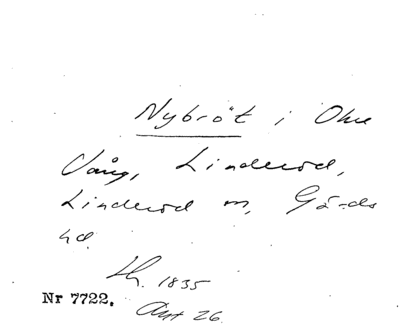 Nybröt i Ohu
Vång, Linderöd,
Linderöd sn, Gärds
hd.
Lh. 1835
Nr 7722. Akt 26